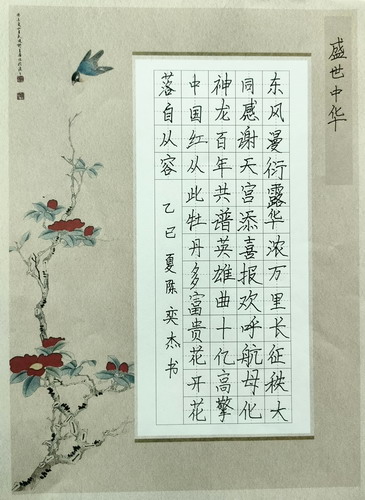 盛世中华
东风漫衍露华浓万里长征秩大
同感谢天宫添喜报欢呼航母化
神龙百年共谱英雄曲十亿高擎
中国红从此牡丹多富贵花开花
落自从容 乙巳夏陈奕杰书